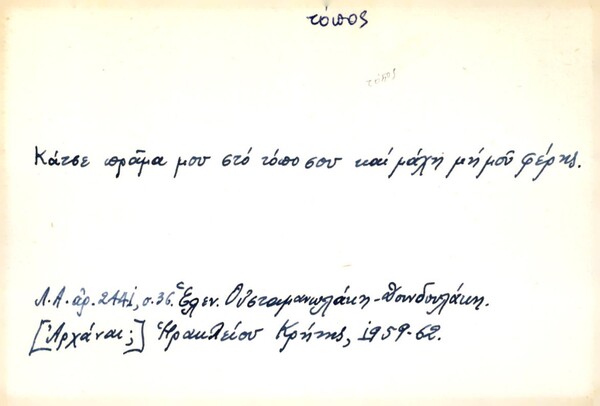 τόπος
τόπος
Κάτσε πρᾶμα μου στό τόπο σου καί μάχη μή μοῦ φέρῃς.
Λ.Α. ἀρ. 2441, σ. 36. Ἑλεν. Οὑσταμανωλάκη-Πουνδουλάκη.
[Ἀρχάναι;] Ἡρακλείου Κρήτης, 1959-62.